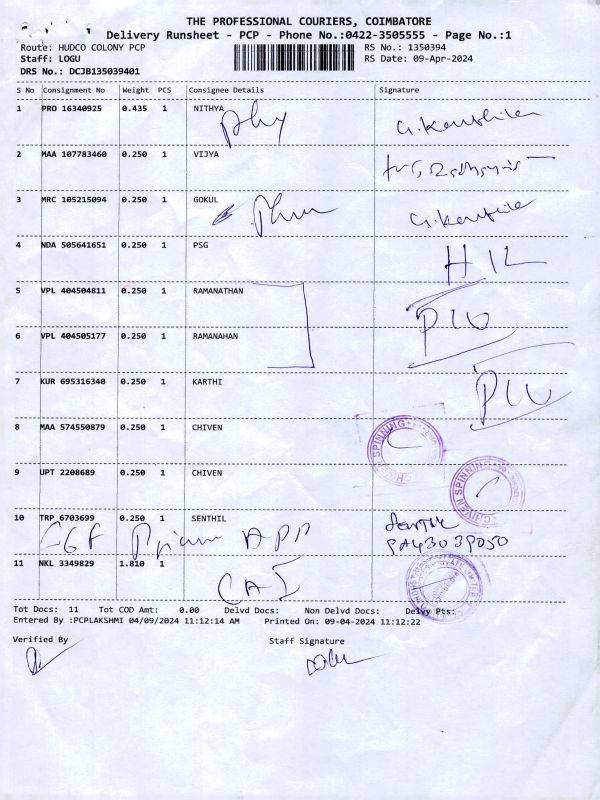 THE PROFESSIONAL COURIERS, COIMBATORE
Delivery Runsheet - PCP - Phone No.:0422-3505555 - Page No.:1
Route: HUDCO COLONY PCP RS No.: 1350394
Staff: LOGU RS Date: 09-Apr-2024
DRS No.: DCJB135039401
S No Consignment No Weight PCS Consignee Details Signature
1 PRO 16340925 0.435 1 NITHYA
2 MAA 107783460 0.250 1 VIJYA
3 MRC 105215094 0.250 1 GOKUL
4 NDA 505641651 0.250 1 PSG
5 VPL 404504811 0.250 1 RAMANATHAN
6 VPL 404505177 0.250 1 RAMANAHAN
7 KUR 695316340 0.250 1 KARTHI
8 MAA 574550879 0.250 1 CHIVEN
CHIVEN SPINNING
9 UPT 2208689 0.250 1 CHIVEN
CHIVEN SPINNING
10 TRP 6703699 0.250 1 SENTHIL
11 NKL 3349829 1.810 1
Tot Docs: 11 Tot COD Amt: 0.00 Delvd Docs: Non Delvd Docs: Delvy Pts:
Entered By :PCPLAKSHMI 04/09/2024 11:12:14 AM Printed On: 09-04-2024 11:12:22
Verified By Staff Signature